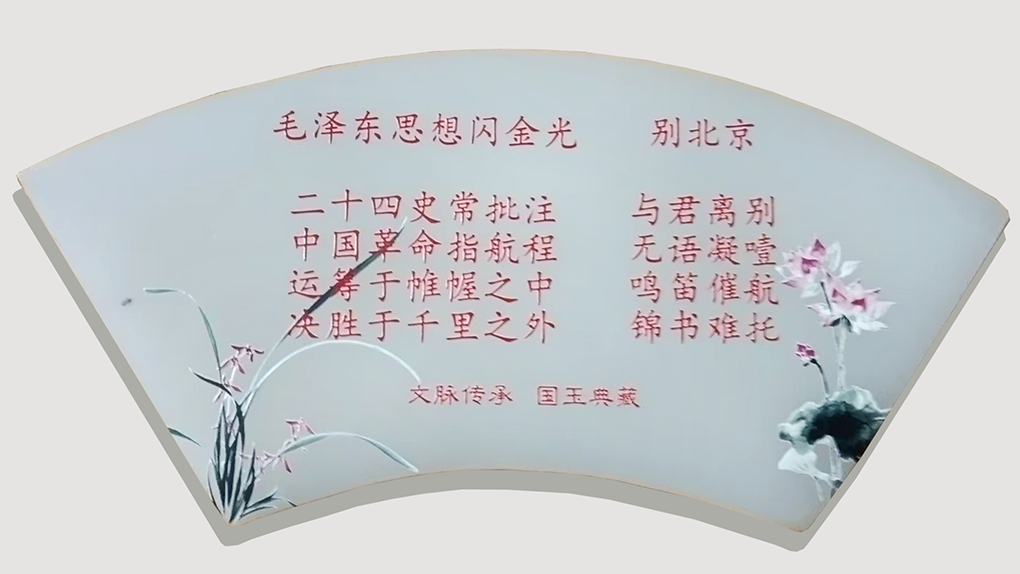 毛泽东思想闪金光
二十四史常批注
中国革命指航程
运等于帷幄之中
决胜于千里之外
别北京
与君离别
无语凝噎
鸣笛催航
锦书难托
文脉传承 国玉典藏